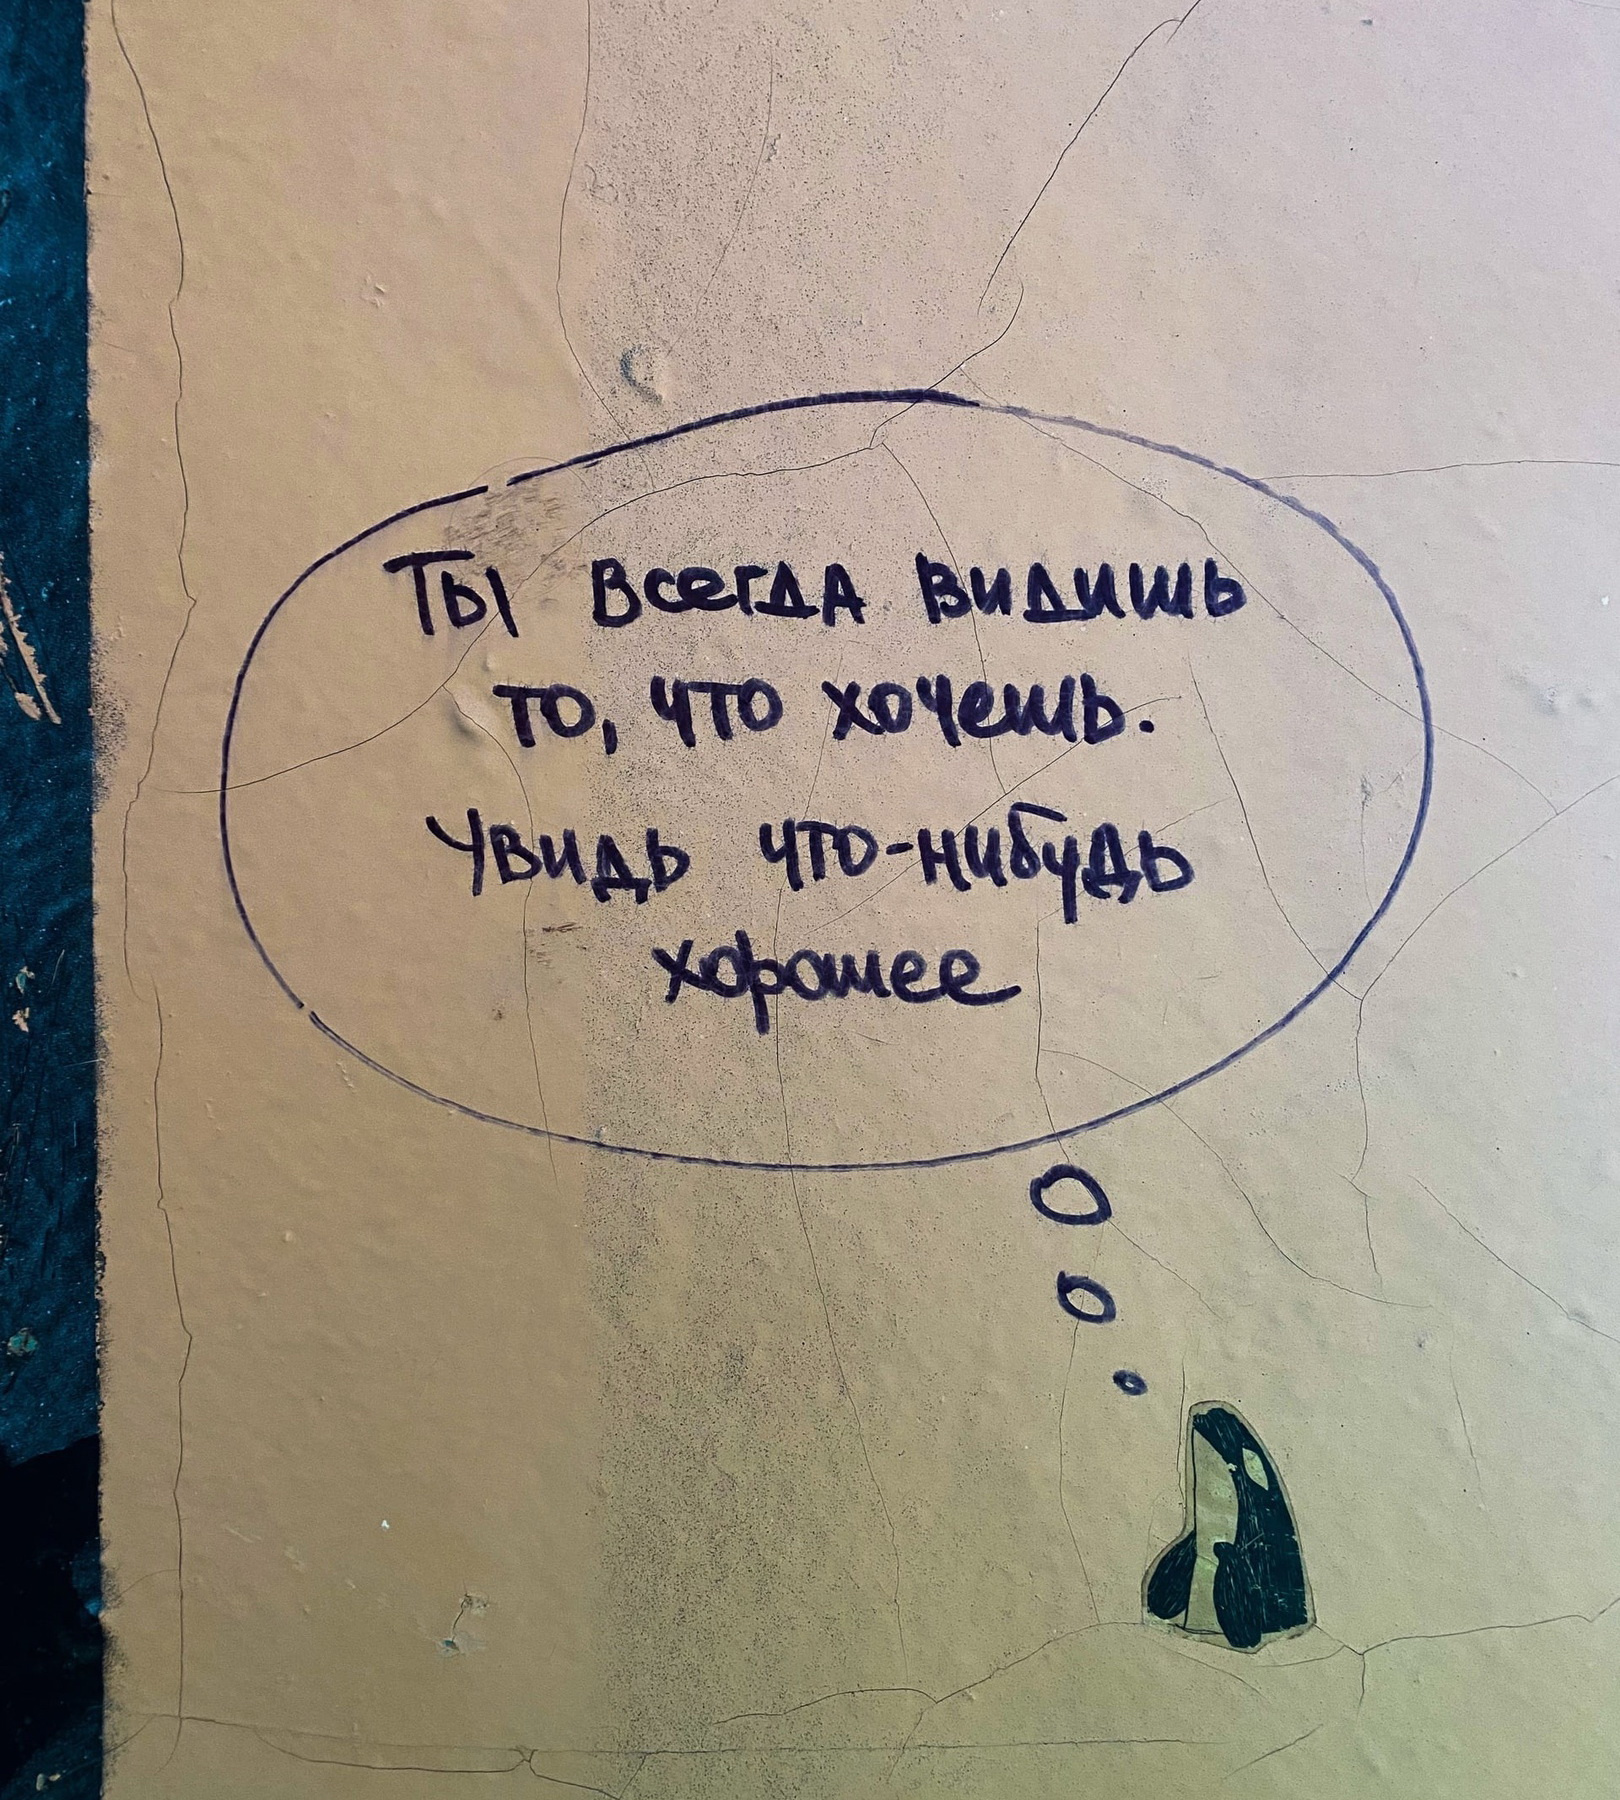 Ты всегда видишь
то, что хочешь.
Увидь что-нибудь
хорошее